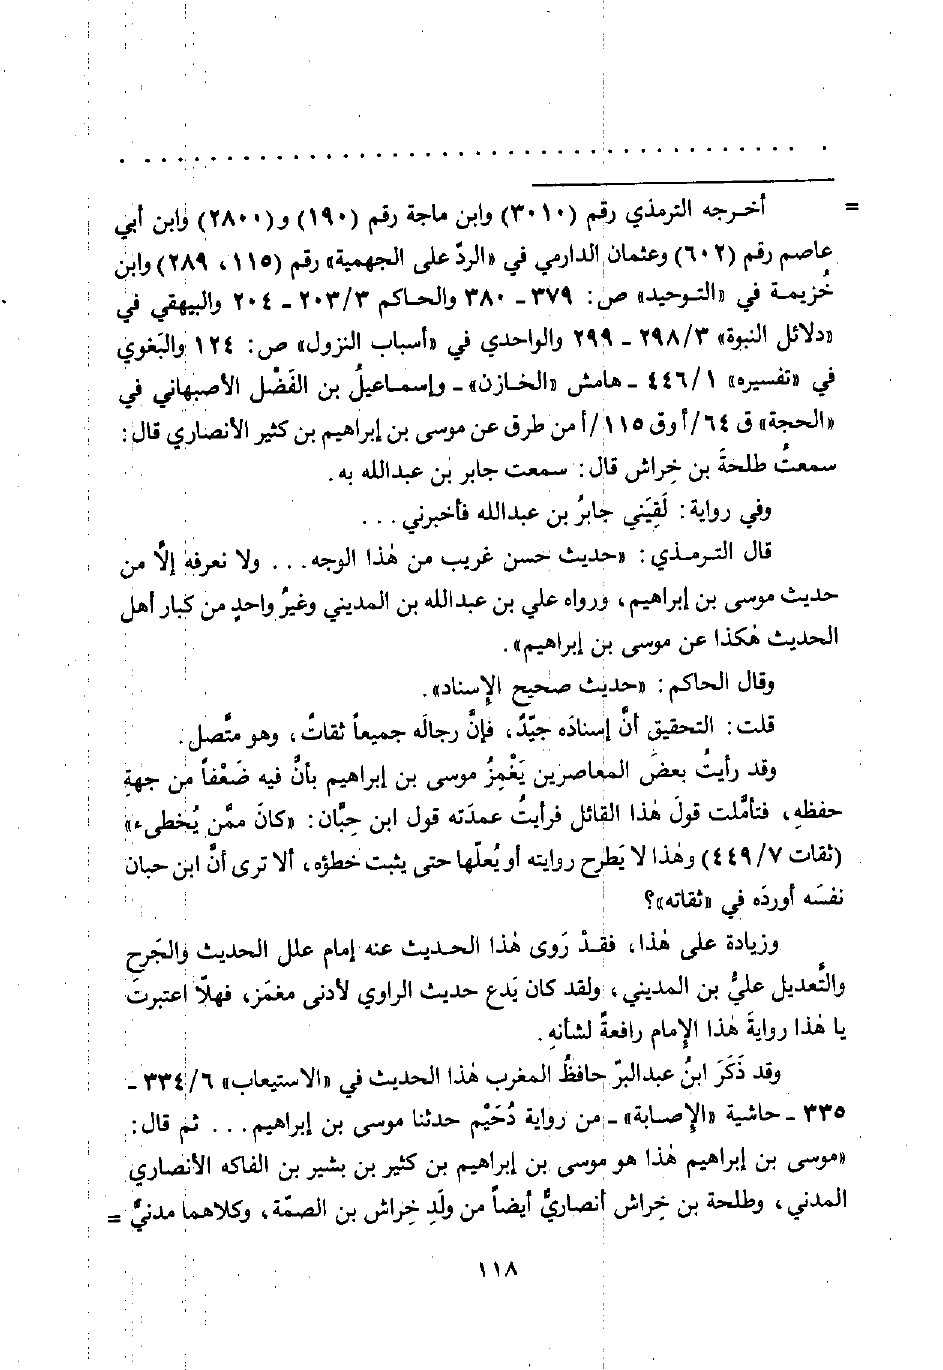 . . . . . . . . . . . . . . . . . . . . . . . . . . . . . . . . . . . . . . . . . . .
= أخرجه الترمذي رقم (٣٠١٠) وابن ماجة رقم (١٩٠) و(٢٨٠٠) وابن أبي
عاصم رقم (٦٠٢) وعثمان الدارمي في «الردّ على الجهمية» رقم (١١٥، ٢٨٩) وابن
خُزيمة في «التوحيد» ص: ٣٧٩ ـ ٣٨٠ والحاكم ٢٠٣/٣ ـ ٢٠٤ والبيهقي في
«دلائل النبوة» ٢٩٨/٣ ـ ٢٩٩ والواحدي في «أسباب النزول» ص: ١٢٤ والبَغوي
في «تفسيره» ٤٤٦/١ ـ هامش «الخازن» ـ وإسماعيلُ بن الفَضْل الأصبهاني في
«الحجة» ق ٦٤/أ وق ١١٥/أ من طرق عن موسى بن إبراهيم بن كثير الأنصاري قال:
سمعتُ طلحةَ بن خِراش قال: سمعت جابر بن عبدالله به.
وفي رواية: لَقِيَني جابرُ بن عبدالله فأخبرني . . .
قال الترمذي: «حديث حسن غريب من هٰذا الوجه. . . ولا نعرفه إلَّا من
حديث موسى بن إبراهيم، ورواه علي بن عبدالله بن المديني وغيرُ واحدٍ من كبار أهل
الحديث هٰكذا عن موسى بن إبراهيم».
وقال الحاكم: «حديث صحيح الإسناد».
قلت: التحقيق أنَّ إسنادَه جيّدٌ، فإنَّ رجالَه جميعاً ثقاتٌ، وهو متَّصل.
وقد رأيتُ بعضَ المعاصرين يَغْمِزُ موسى بن إبراهيم بأنَّ فيه ضَعْفاً من جهةِ
حفظهِ، فتأمَّلت قولَ هٰذا القائل فرأيتُ عمدَته قول ابن حِبَّان: «كانَ ممَّن يُخطىء»
(ثقات ٤٤٩/٧) وهٰذا لا يَطرح روايته أو يُعلّها حتى يثبت خطؤه، ألا ترى أنَّ ابن حبان
نفسَه أوردَه في «ثقاته»؟
وزيادة على هٰذا، فقدْ رَوى هٰذا الحديث عنه إمام علل الحديث والجَرح
والتَّعديل عليُّ بن المديني، ولقد كان يَدع حديث الراوي لأدنى مغمَز، فهلّا اعتبرتَ
يا هٰذا روايةَ هٰذا الإمام رافعةً لشأنهِ.
وقد ذَكَرَ ابنُ عبدالبرّ حافظُ المغرب هٰذا الحديث في «الاستيعاب» ٣٣٤/٦ ـ
٣٣٥ ـ حاشية «الإصابة» ـ من رواية دُحَيْم حدثنا موسى بن إبراهيم. . . ثم قال:
«موسى بن إبراهيم هٰذا هو موسى بن إبراهيم بن كثير بن بشير بن الفاكه الأنصاري
المدني، وطلحة بن خِراش أنصاريٌّ أيضاً من ولَدِ خِراش بن الصمّة، وكلاهما مدنيٌّ =
١١٨